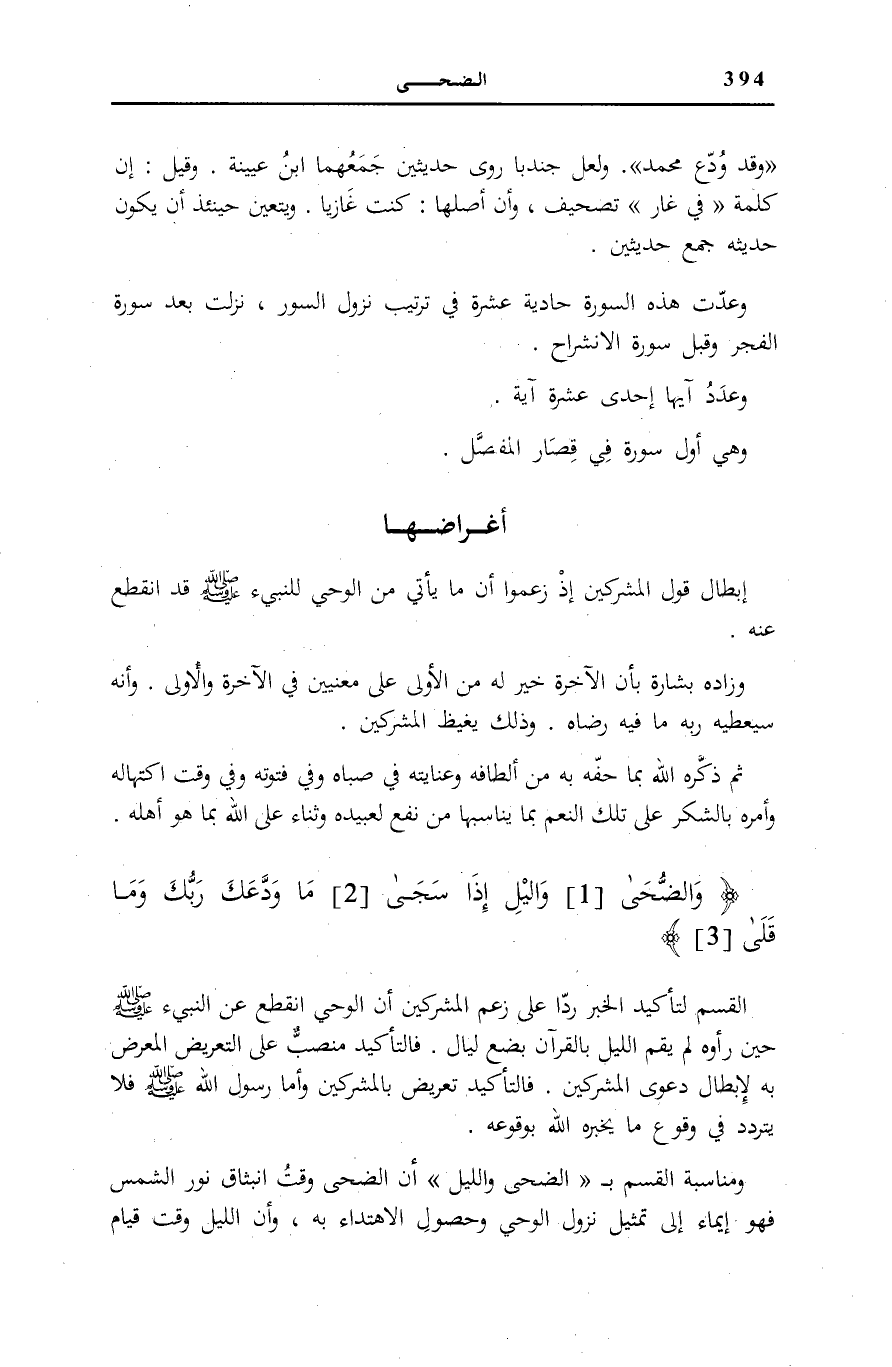 394 الضحــــى
«وقد وُدّع محمد». ولعل جندبا روى حديثين جَمَعُهما ابنُ عيينة . وقيل : إن
كلمة « في غار » تصحيف ، وأن أصلها : كنت غَازيا . ويتعين حينئذ أن يكون
حديثه جمع حديثين .
وعدّت هذه السورة حادية عشرة في ترتيب نزول السور ، نزلت بعد سورة
الفجر وقبل سورة الانشراح .
وعدَدُ آيها إحدى عشرة آية .
وهي أول سورة فِي قِصَار المفصَّل .
أغــراضــهــا
إبطال قول المشركين إذْ زعموا أن ما يأتي من الوحي للنبيء ﷺ قد انقطع
عنه .
وزاده بشارة بأن الآخرة خير له من الأولى على معنيين في الآخرة والْأولى . وأنه
سيعطيه ربه ما فيه رضاه . وذلك يغيظ المشركين .
ثم ذكَّره الله بما حفّه به من ألطافه وعنايته في صباه وفي فتوته وفي وقت اكتهاله
وأمره بالشكر على تلك النعم بما يناسبها من نفع لعبيده وثناء على الله بما هو أهله .
﴿ وَالضُّحَىٰ [1] وَاليْلِ إِذَا سَجَـىٰ [2] مَا وَدَّعَكَ رَبُّكَ وَمَـا
قَلَىٰ [3] ﴾
القسم لتأكيد الخبر ردّا على زعم المشركين أن الوحي انقطع عن النبيء ﷺ
حين رأوه لم يقم الليل بالقرآن بضع ليال . فالتأكيد منصبٌّ على التعريض المعرض
به لإِبطال دعوى المشركين . فالتأكيد تعريض بالمشركين وأما رسول الله ﷺ فلا
يتردد في وقوع ما يخبره الله بوقوعه .
ومناسبة القسم بـ « الضحى والليل » أن الضحى وقتُ انبثاق نور الشمس
فهو إيماء إلى تمثيل نزول الوحي وحصولِ الاهتداء به ، وأن الليل وقت قيام